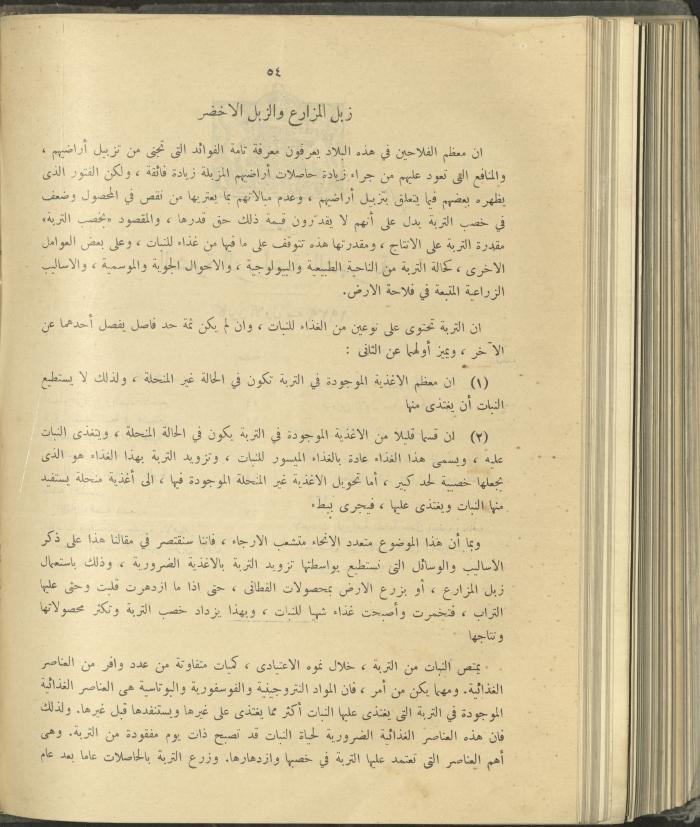 ٥٤
زبل المزارع والزبل الاخضر
ان معظم الفلاحين في هذه البلاد يعرفون معرفة تامة الفوائد التى تجنى من تزبيل أراضيهم ،
والمنافع التى تعود عليهم من جراء زيادة حاصلات أراضيهم المزبلة زيادة فائقة ، ولكن الفتور الذى
يظهره بعضهم فيما يتعلق بتزبيل أراضيهم ، وعدم مبالاتهم بما يعتريها من نقص في المحصول وضعف
في خصب التربة يدل على أنهم لا يقدرون قيمة ذلك حق قدرها ، والمقصود «بخصب التربة»
مقدرة التربة على الانتاج ، ومقدرتها هذه تتوقف على ما فيها من غذاء للنبات ، وعلى بعض العوامل
الاخرى ، كحالة التربة من الناحية الطبيعية والبيولوجية ، والاحوال الجوية والموسمية ، والاساليب
الزراعية المتبعة في فلاحة الارض.
ان التربة تحتوى على نوعين من الغذاء للنبات ، وان لم يكن ثمة حد فاصل يفصل أحدهما عن
الآخر ، ويميز أولهما عن الثانى :
(١) ان معظم الاغذية الموجودة في التربة تكون في الحالة غير المنحلة ، ولذلك لا يستطيع
النبات أن يغتذى منها
(٢) ان قسما قليلا من الاغذية الموجودة في التربة يكون في الحالة المنحلة ، ويتغذى النبات
عليه ، ويسمى هذا الغذاء عادة بالغذاء الميسور للنبات ، وتزويد التربة بهذا الغذاء هو الذى
يجعلها خصيبة لحد كبير ، أما تحويل الاغذية غير المنحلة الموجودة فيها ، الى أغذية منحلة يستفيد
منها النبات ويغتذى عليها ، فيجرى ببطء
وبما أن هذا الموضوع متعدد الانحاء متشعب الارجاء ، فاننا سنقتصر في مقالنا هذا على ذكر
الاساليب والوسائل التى نستطيع بواسطتها تزويد التربة بالاغذية الضرورية ، وذلك باستعمال
زبل المزارع ، أو بزرع الارض بمحصولات القطانى ، حتى اذا ما ازدهرت قلبت وحثى عليها
التراب ، فتخمرت وأصبحت غذاء شهيا للنبات ، وبهذا يزداد خصب التربة وتكثر محصولاتها
ونتاجها
يمتص النبات من التربة ، خلال نموه الاعتيادى ، كميات متفاوتة من عدد وافر من العناصر
الغذائية. ومهما يكن من أمر ، فان المواد النتروجينية والفوسفورية والبوتاسية هى العناصر الغذائية
الموجودة في التربة التى يغتذى عليها النبات أكثر مما يغتذى على غيرها ويستنفدها قبل غيرها. ولذلك
فان هذه العناصر الغذائية الضرورية لحياة النبات قد تصبح ذات يوم مفقودة من التربة. وهى
أهم العناصر التى تعتمد عليها التربة في خصبها وازدهارها. وزرع التربة بالحاصلات عاما بعد عام